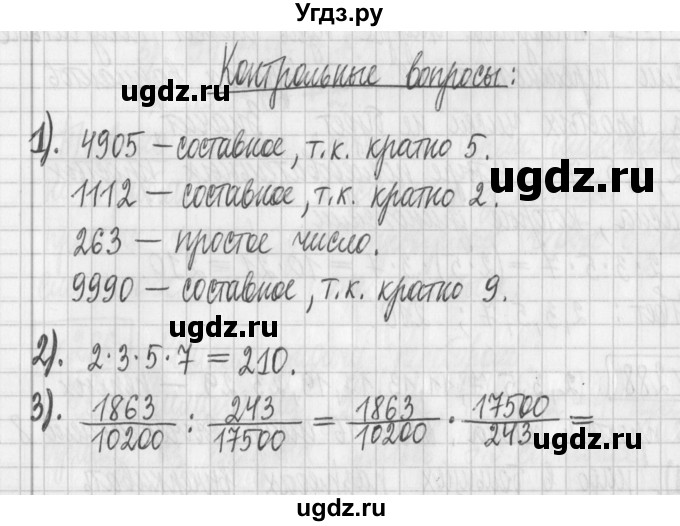 Угдз.ру
Контрольные вопросы:
ugdz.ru
1). 4905 – составное, т.к. кратно 5.
ugdz.ru
1112 – составное, т.к. кратно 2.
263 – простое число.
9990 – составное, т.к. кратно 9.
ugdz.ru
2). 2·3·5·7 = 210.
3). 1863/10200 : 243/17500 = 1863/10200 · 17500/243 =
ugdz.ru
ugdz.ru